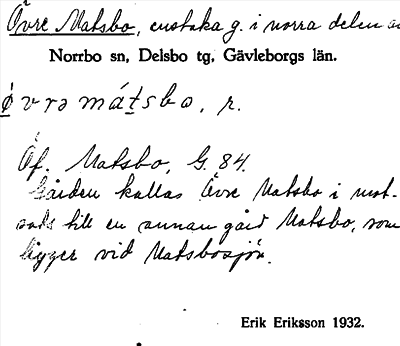 Övre Matsbo, enstaka g. i norra delen av
Norrbo sn, Delsbo tg, Gävleborgs län.
ǿvrəmát̠sbo, r.
Öf. Matsbo, G. 84.
Gården kallas Övre Matsbo i mot-
sats till en annan gård Matsbo, som
ligger vid Matsbosjön.
Erik Eriksson 1932.